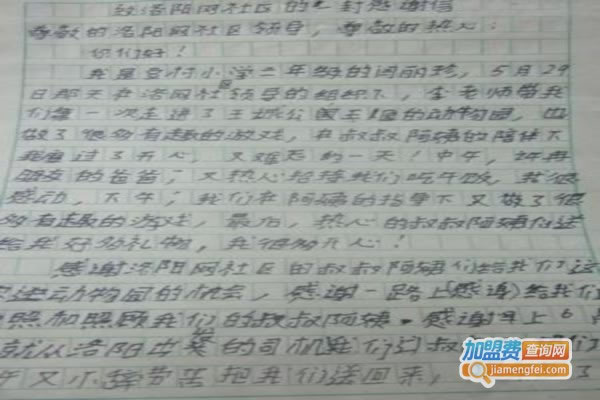 给洛阳网社区的一封感谢信
尊敬的洛阳网社区领导，尊敬的热心：
你们好！
我是 村小学二年级的闫丽珍，5月29
日那天在洛网社区领导的组织下，李老师带我
们第一次走进了王城公园王城的动物园，也
做了很多有趣的游戏，在叔叔阿姨的陪伴下
我度过了开心，又难忘的一天！中午，许冉
朋友的爸爸；又热心招待我们吃午饭，我很
感动，下午；我们在阿姨的指导下又做了很
多有趣的游戏，最后，热心的叔叔阿姨们送
给我好多礼物，我很的开心！
感谢洛阳网社区的叔叔阿姨们给我们这
走进动物园的机会，感谢一路上(感谢)给我们
照和照顾我们的叔叔阿姨。感谢早上6
就从洛阳出发的司机我们的叔 们
午又小 劳苦把我们送回来， 了
加盟费查询网
jiamengfei.com